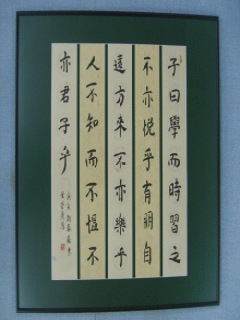 子曰學而時習之
不亦悅乎有朋自
遠方來不亦樂乎
人不知而不慍不
亦君子乎